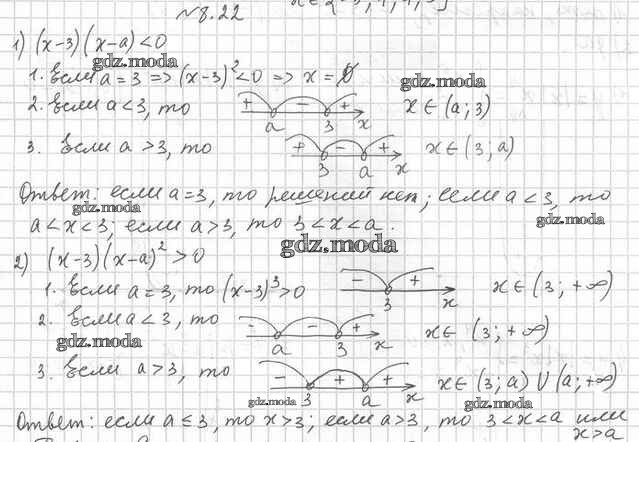 №8.22
1) (x-3)(x-a)<0
gdz.moda
1. Если a=3 => (x-3)²<0 => x=Ø
gdz.moda
2. Если a<3, то + a - 3 + x x∈(a;3)
3. Если a>3, то + 3 - a + x x∈(3;a)
Ответ: если a=3, то решений нет; если a<3, то
gdz.moda
a<x<3; если a>3, то 3<x<a.
gdz.moda
gdz.moda
2) (x-3)(x-a)²>0
1. Если a=3, то (x-3)³>0 - 3 + x x∈(3;+∞)
2. Если a<3, то - a - 3 + x x∈(3;+∞)
gdz.moda
3. Если a>3, то - 3 + a + x x∈(3;a)∪(a;+∞)
gdz.moda
gdz.moda
Ответ: если a≤3, то x>3; если a>3, то 3<x<a или
x>a